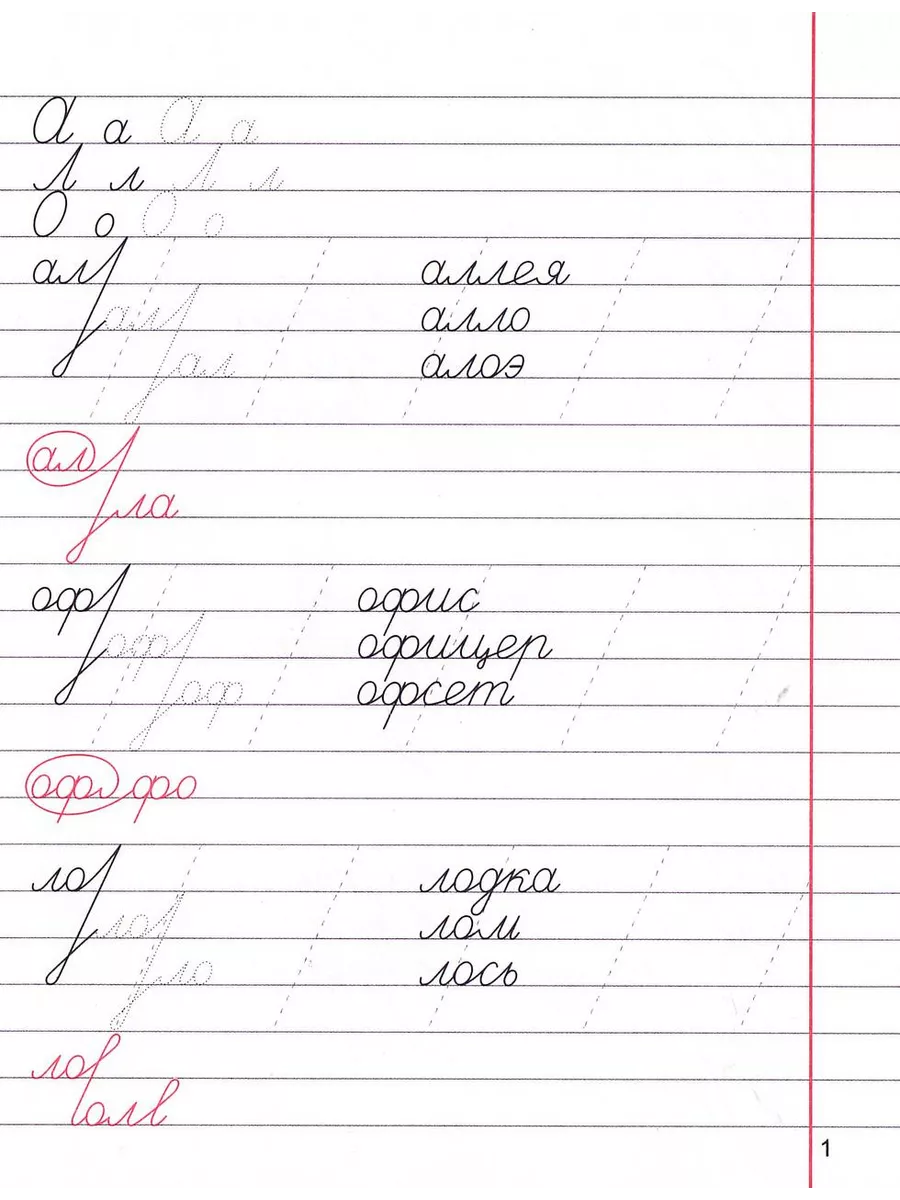 А а А а
Л л Л л
О о О о
ал аллея
ал алло
ал алоэ
ал
ла
оф офис
оф офицер
оф офсет
оф фо
ло лодка
ло лом
ло лось
ло
ол
1